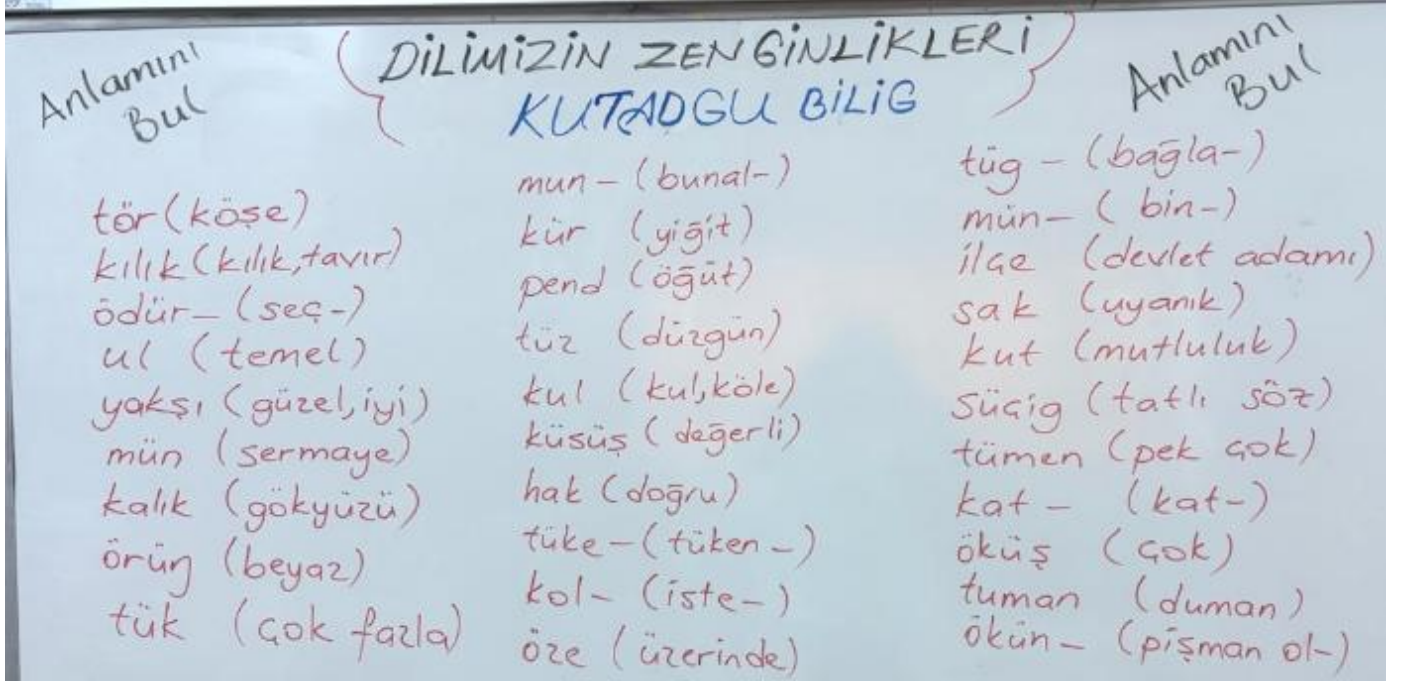 Anlamını
Bul
DİLİMİZİN ZENGİNLİKLERİ
KUTADGU BİLİG
Anlamını
Bul
tör (köşe)
kılık (kılık, tavır)
ödür- (seç-)
ul (temel)
yakşı (güzel, iyi)
mün (sermaye)
kalık (gökyüzü)
örüŋ (beyaz)
tük (çok fazla)
mun- (bunal-)
kür (yiğit)
pend (öğüt)
tüz (düzgün)
kul (kul, köle)
küsüş (değerli)
hak (doğru)
tüke- (tüken-)
kol- (iste-)
öze (üzerinde)
tüg- (bağla-)
mün- (bin-)
ilçe (devlet adamı)
sak (uyanık)
kut (mutluluk)
süçig (tatlı söz)
tümen (pek çok)
kat- (kat-)
öküş (çok)
tuman (duman)
ökün- (pişman ol-)